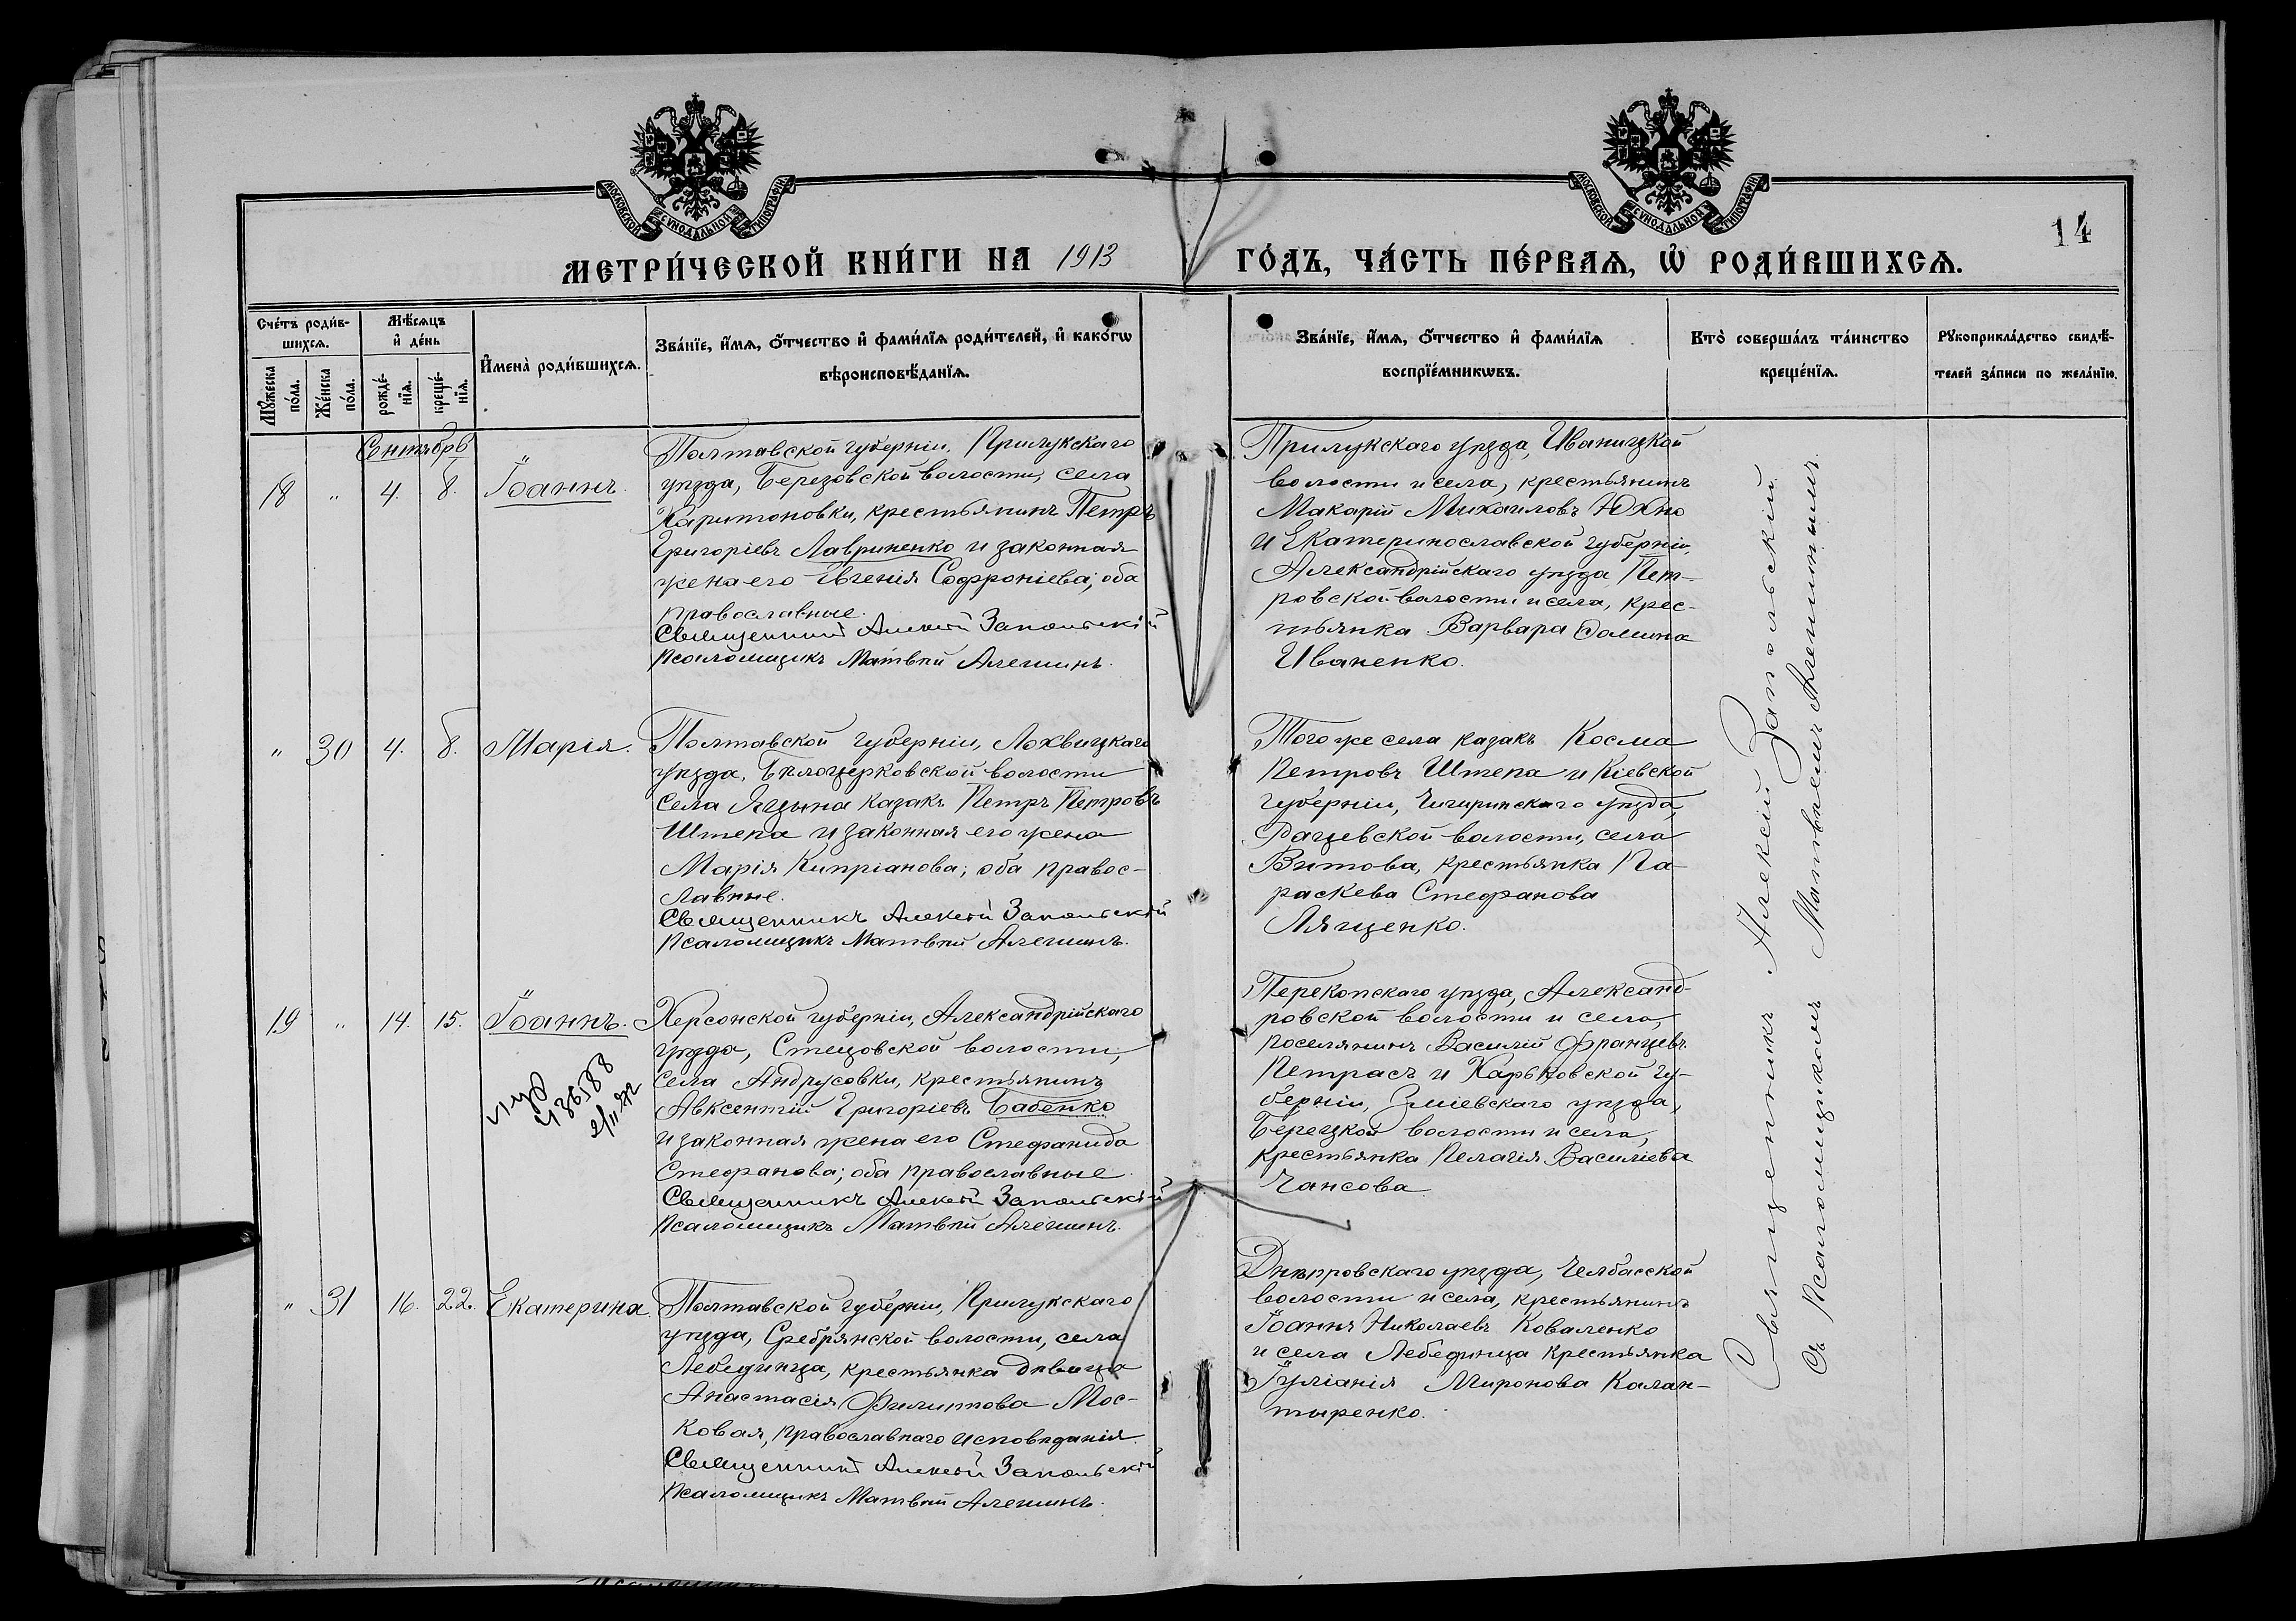 МОСКОВСКОЙ СѴНОДАЛЬНОЙ ТИПОГРАФІИ
МОСКОВСКОЙ СѴНОДАЛЬНОЙ ТИПОГРАФІИ
14
МЕТРИ́ЧЕСКОЙ КНИ́ГИ НА 1913 ГО́ДЪ, ЧА́СТЬ ПЕ́РВАѦ, Ѽ РОДИ́ВШИХСѦ.
Сче́тъ роди́в-
шихсѧ.
Мꙋ́жеска по́ла.
Же́нска по́ла.
Мѣ́сѧцъ
и҆ де́нь
рожде́-нїѧ.
креще́-нїѧ.
И҆мена̀ роди́вшихсѧ.
Зва́нїе, и҆́мѧ, ѻ҆́тчество и҆ фами́лїѧ роди́телей, и҆ како́гѡ
вѣроисповѣ́данїѧ.
Зва́нїе, и҆́мѧ, ѻ҆́тчество и҆ фами́лїѧ
воспрїе́мникѡвъ.
Кто̀ соверша́лъ та́инство
креще́нїѧ.
Рꙋкоприкла́дство свидѣ́-
телей за́писи по жела́нїю.
Сентябрь
18 " 4. 8. Іоаннъ.
Полтавской губерніи, Прилукскаго
уѣзда, Березовской волости, села
Харитоновки, крестьянинъ Петръ
Григоріевъ Лавриненко и законная
жена его Евгенія Софроніева; оба
православные.
Священникъ Алексѣй Запольскій
Псаломщикъ Матвѣй Алешинъ.
Прилукскаго уѣзда, Иваницкой
волости и села, крестьянинъ
Макарій Михаиловъ Юхно
и Екатеринославской губерніи,
Александрійскаго уѣзда, Пет-
ровской волости и села, крес-
тьянка Варвара Фомина
Иваненко.
" 30 4. 8. Марія.
Полтавской губерніи, Лохвицкаго
уѣзда, Бѣлоцерковской волости
села Яцына казакъ Петръ Петровъ
Штепа и законная его жена
Марія Кипріанова; оба правос-
лавные.
Священникъ Алексѣй Запольскій
Псаломщикъ Матвѣй Алешинъ.
Того же села казакъ Косма
Петровъ Штепа и Кіевской
губерніи, Чигиринскаго уѣзда,
Рацевской волости, села
Витова, крестьянка Па-
раскева Стефанова
Лященко.
19 " 14. 15. Іоаннъ.
436588
Херсонской губерніи, Александрійскаго
уѣзда, Стецовской волости,
села Андрусовки, крестьянинъ
Авксентій Григоріевъ Бабенко
и законная жена его Стефанида
Стефанова; оба православные.
Священникъ Алексѣй Запольскій
Псаломщикъ Матвѣй Алешинъ.
Перекопскаго уѣзда, Александ-
ровской волости и села,
поселянинъ Василій Францевъ
Петрасъ и Харьковской гу-
берніи, Зміевскаго уѣзда,
Берецкой волости и села,
крестьянка Пелагія Василіева
Чансова.
" 31 16. 22. Екатерина.
Полтавской губерніи, Прилукскаго
уѣзда, Сребрянской волости, села
Лебединца, крестьянка дѣвица
Анастасія Филиппова Мос-
ковая, православнаго исповѣданія.
Священникъ Алексѣй Запольскій
Псаломщикъ Матвѣй Алешинъ.
Днѣпровскаго уѣзда, Челбасской
волости и села, крестьянинъ
Іоаннъ Николаевъ Коваленко
и села Лебединца крестьянка
Іуліанія Миронова Калан-
тыренко.
Священникъ Алексій Запольскій
Съ Псаломщикомъ Матвѣемъ Алешинымъ.